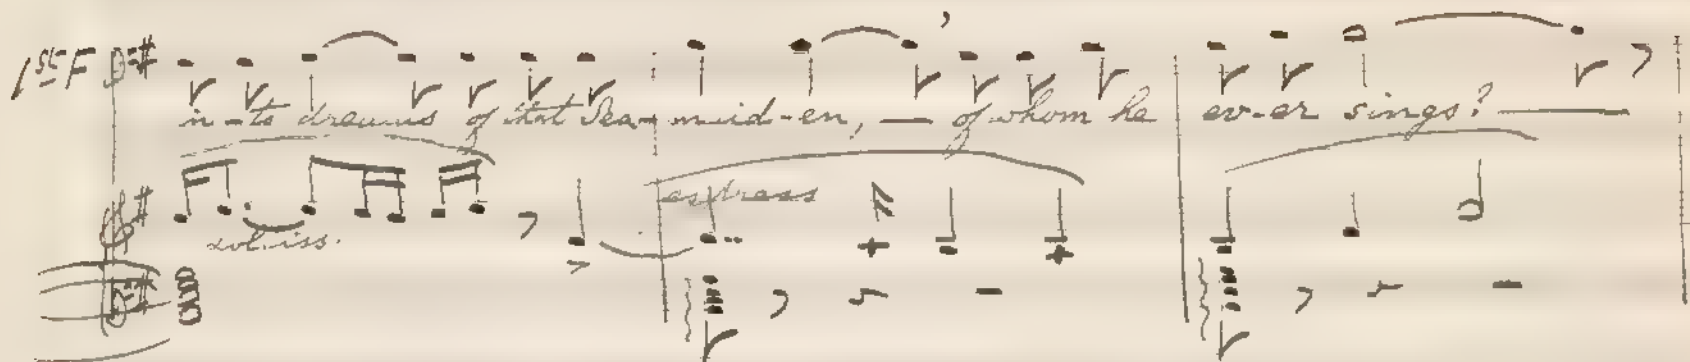 1st F
in-to dreams of that Sea-maid-en, — of whom he ev-er sings? —
express